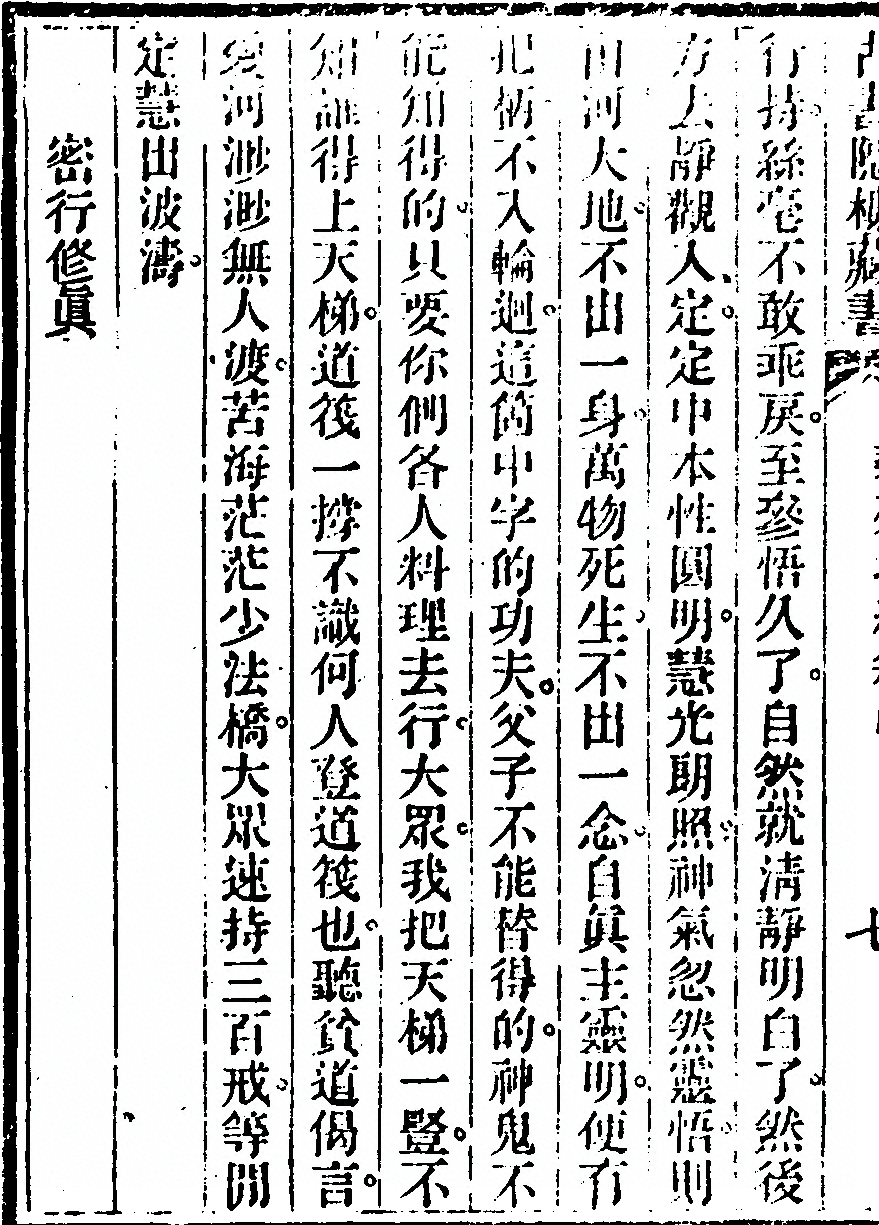 古書隱樓藏書
七
行持絲毫不敢乖戾至參悟久了自然就淸靜明白了然後
方去靜觀入定定中本性圓明慧光朗照神氣忽然靈悟則
山河大地不出一身萬物死生不出一念自眞主靈明便有
把柄不入輪迴這箇中字的功夫父子不能替得的神鬼不
能知得的只要你們各人料理去行大眾我把天梯一豎不
知誰得上天梯道筏一撐不識何人登道筏也聽貧道偈言
愛河渺渺無人渡苦海茫茫少法橋大眾速持三百戒等閒
定慧出波濤
密行修眞